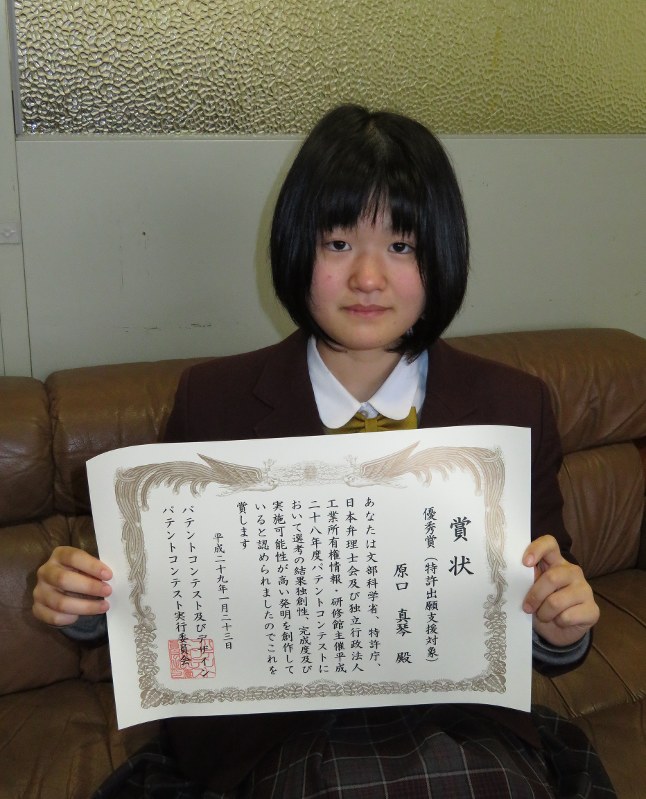 賞状
優秀賞(特許出願支援対象)
原口 真琴 殿
あなたは文部科学省、特許庁、
日本弁理士会及び独立行政法人
工業所有権情報・研修館主催平成
二十八年度パテントコンテストに
おいて選考の結果独創性、完成度及び
実施可能性が高い発明を創作して
いると認められましたのでこれを
賞します
平成二十九年一月二十三日
パテントコンテスト及びデザイン
パテントコンテスト実行委員会